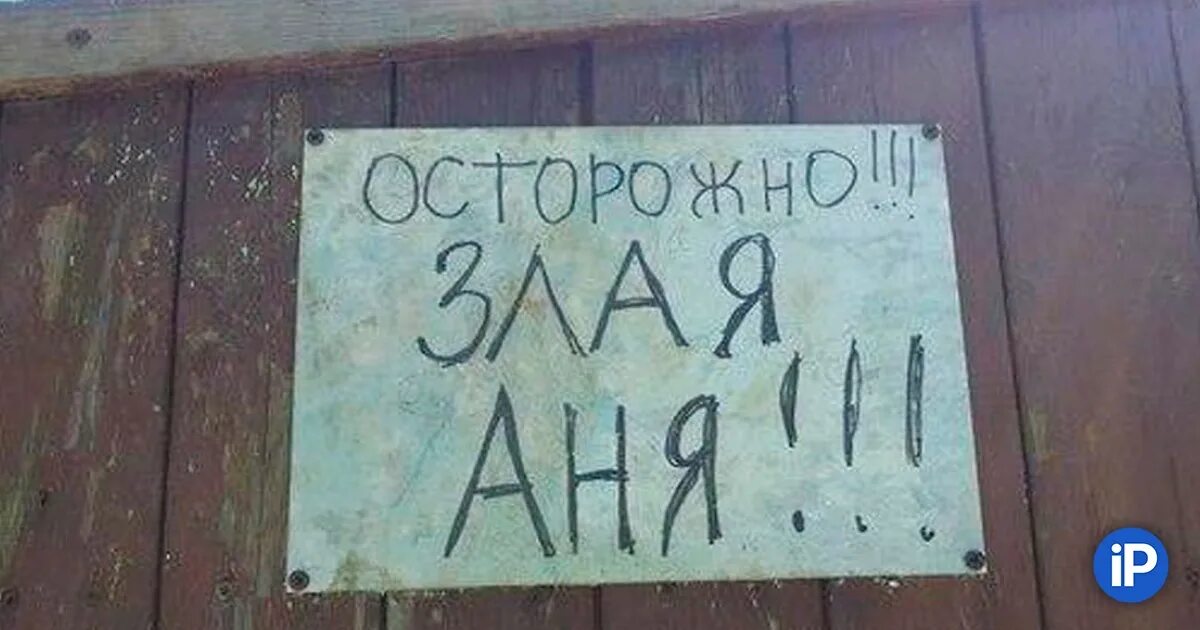 ОСТОРОЖНО!!!
ЗЛАЯ
АНЯ!!!
iP